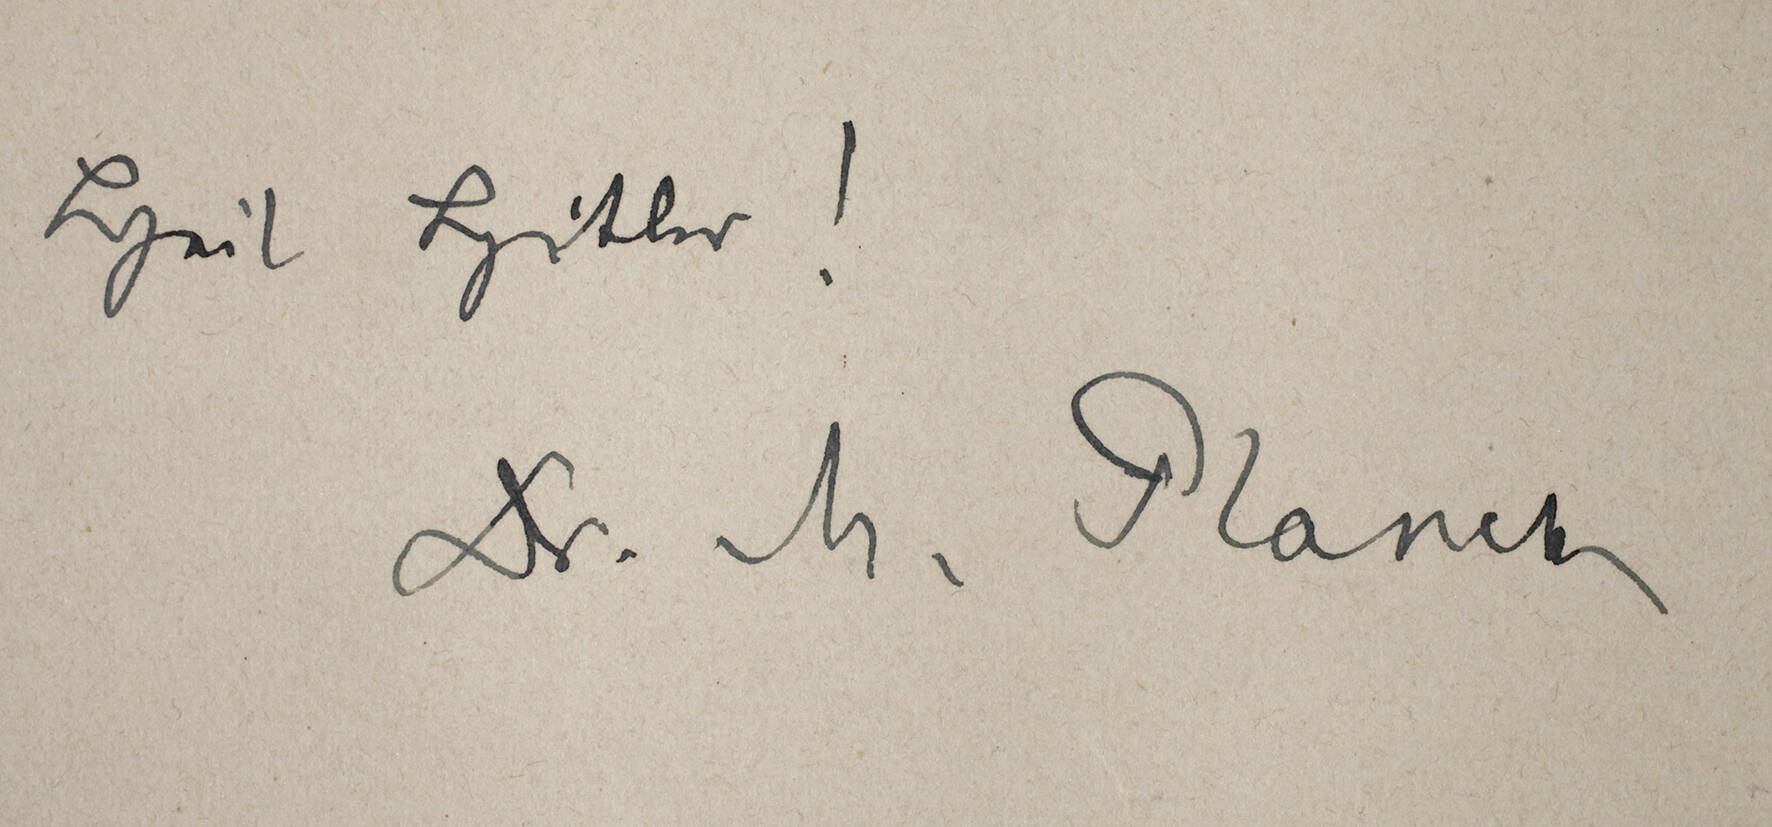 Heil Hitler!
Dr. M. Planck